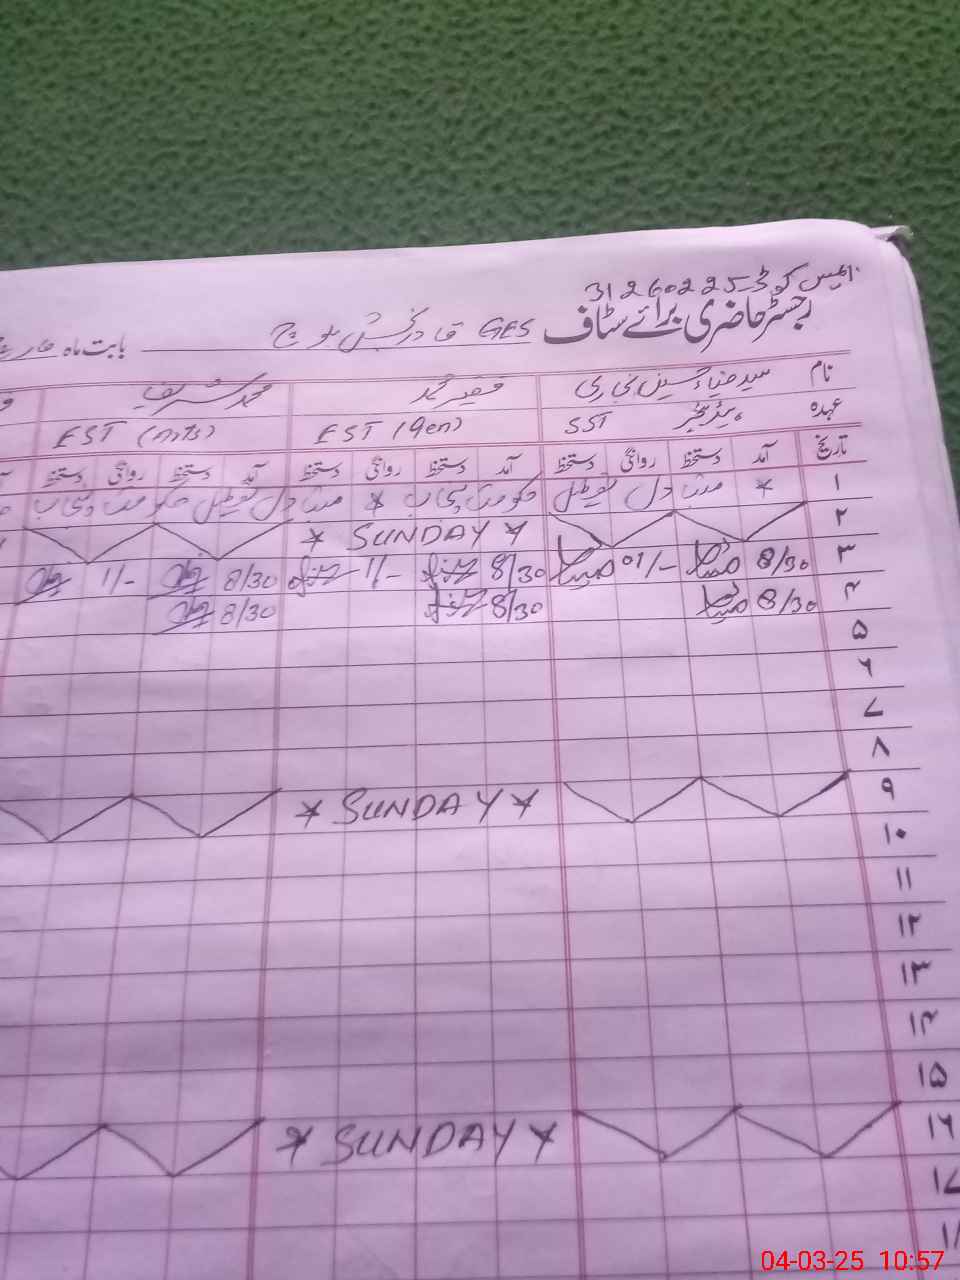 ایمس کوڈ 31260225
رجسٹر حاضری برائے سٹاف GES قادر بخش بلوچ بابت ماہ مارچ
نام سید ضیاء حسین بخاری فقیر محمد محمد شریف
عہدہ ہیڈ ٹیچر SST EST (Gen) EST (nts)
تاریخ آمد دستخط روانگی دستخط آمد دستخط روانگی دستخط آمد دستخط روانگی دستخط
۱ * دل حکومت پنجاب * دل حکومت پنجاب
۲ * SUNDAY *
۳ 8/30 ضیاء 01/- ضیاء 8/30 1/- 8/30 1/-
۴ 8/30 ضیاء 8/30 8/30
۵
۶
۷
۸
۹ * SUNDAY *
۱۰
۱۱
۱۲
۱۳
۱۴
۱۵
۱۶ * SUNDAY *
۱۷
04-03-25 10:57